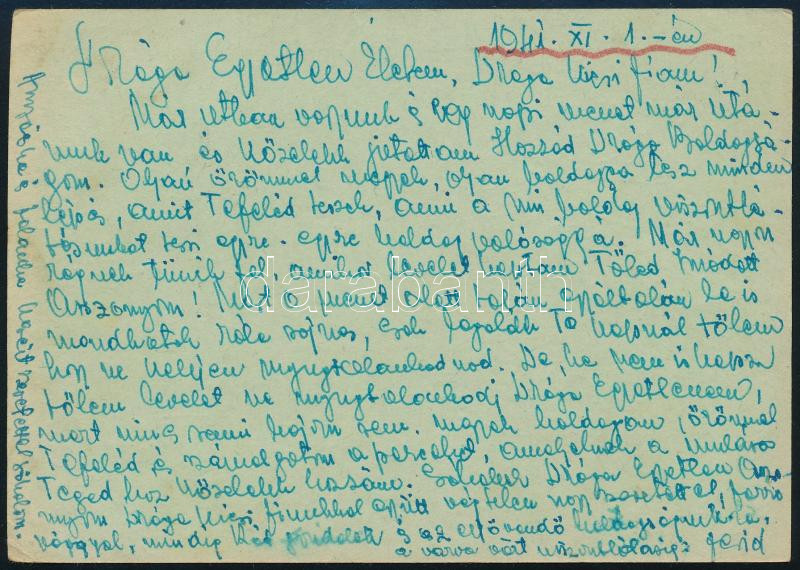 1941. XI. 1.-én
Drága Egyetlen Életem, Drága Kicsi Fiam!
Már útban vagyunk és egy napi menet már utá-
nunk van és közelebb jutottam Hozzád Drága Boldogsá-
gom. Olyan örömmel megyek, olyan boldoggá tesz minden
lépés, amit Tefeléd teszek, ami a mi boldog viszontlá-
tásunkat teszi egyre-egyre boldog valósággá. Már nagyon
régnek tűnik fel, amikor levelet kaptam Tőled Imádott
Asszonyom! Mert a menet alatt talán egyáltalán le is
mondhatok róla sajnos, csak legalább Te kapnál tőlem
hogy ne kelljen nyugtalankodnod. De, ha nem is kapsz
tőlem levelet ne nyugtalankodj Drága Egyetlenem,
mert nincs semmi bajom sem. Megyek boldogan, örömmel
Tefeléd és számolgatom a perceket, amelyeknek a múlása
Téged hoz közelebb hozzám. Csókollak Drága Egyetlen Asszo-
nyom Drága Kicsi fiunkkal együtt végtelen nagy szeretettel, forró
vággyal, mindig és az eljövendő boldogságunkra,
a várva várt viszontlátásig: Jenőd
Anyáskáé Kezét szeretettel csókolom.
darabanth